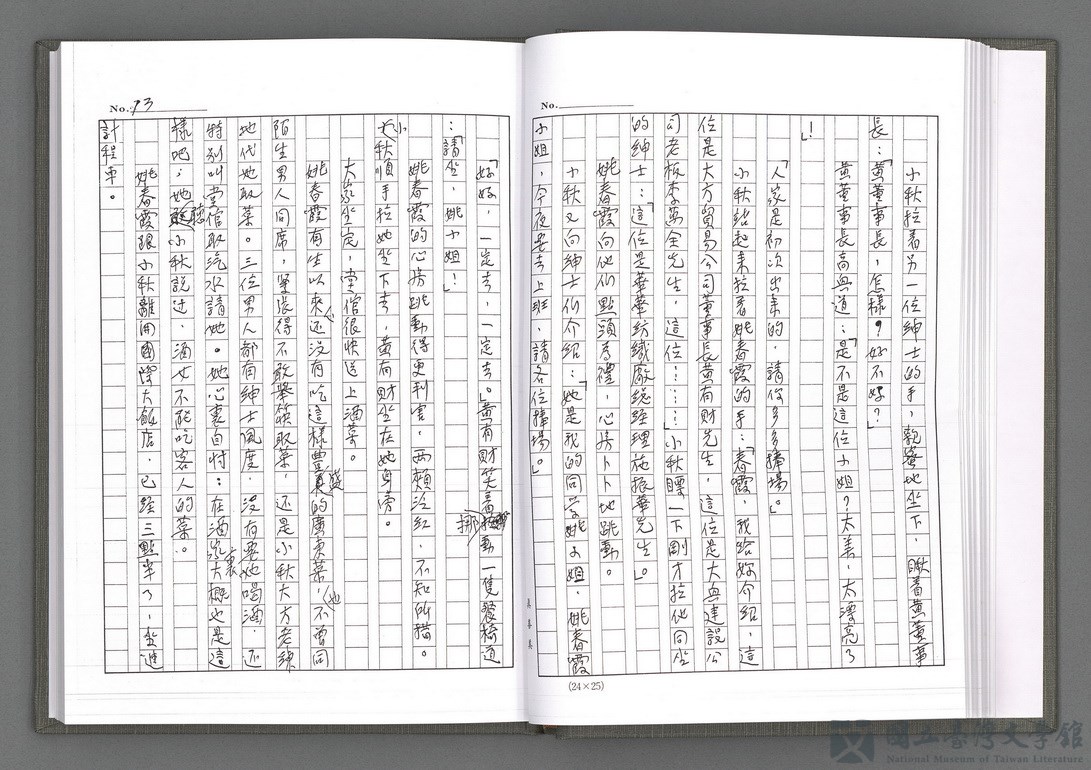 No.
小秋拉着另一位紳士的手，親蜜地坐下，瞅着黃董事
長：「黃董事長，怎樣？好不好？」
黃董事長高興道：「是不是這位小姐？太美，太漂亮了
！」
「人家是初次出來的，請你多多捧場。」
小秋站起來拉着姚春霞的手：「春霞，我給妳介紹，這
位是大方貿易公司董事長黃有財先生，這位是大興建設公
司老板李萬全先生，這位⋯⋯⋯」小秋瞟一下剛才拉他同坐
的紳士：「這位是華華紡織廠總經理施振華先生。」
姚春霞向他們點頭為禮，心房卜卜地跳動。
小秋又向紳士們介紹：「她是我的同學姚小姐，姚春霞
小姐，今夜要去上班，請各位捧場。」
(24×25)
No. 73
「好好，一定去，一定去。」黃有財笑着挪動一隻餐椅道
：「請坐，姚小姐！」
姚春霞的心房跳動得更利害，两頰泛紅，不知所措。
小秋順手拉她坐下去，黃有財坐在她身旁。
大家坐定，堂倌很快送上酒菜。
姚春霞有生以來还沒有吃這樣豐盛的廣東菜，也不曾同
陌生男人同席，緊張得不敢舉筷取菜，还是小秋大方老練
地代她取菜。三位男人都有紳士風度，沒有要她喝酒，还
特別叫堂倌取汽水請她。她心裏自忖：在酒家裏大概也是這
樣吧，她聽小秋説过，酒女不能吃客人的菜。
姚春霞跟小秋離開國際大飯店，已經三點半了，坐進
計程車。
國立臺灣文學館
National Museum of Taiwan Literature